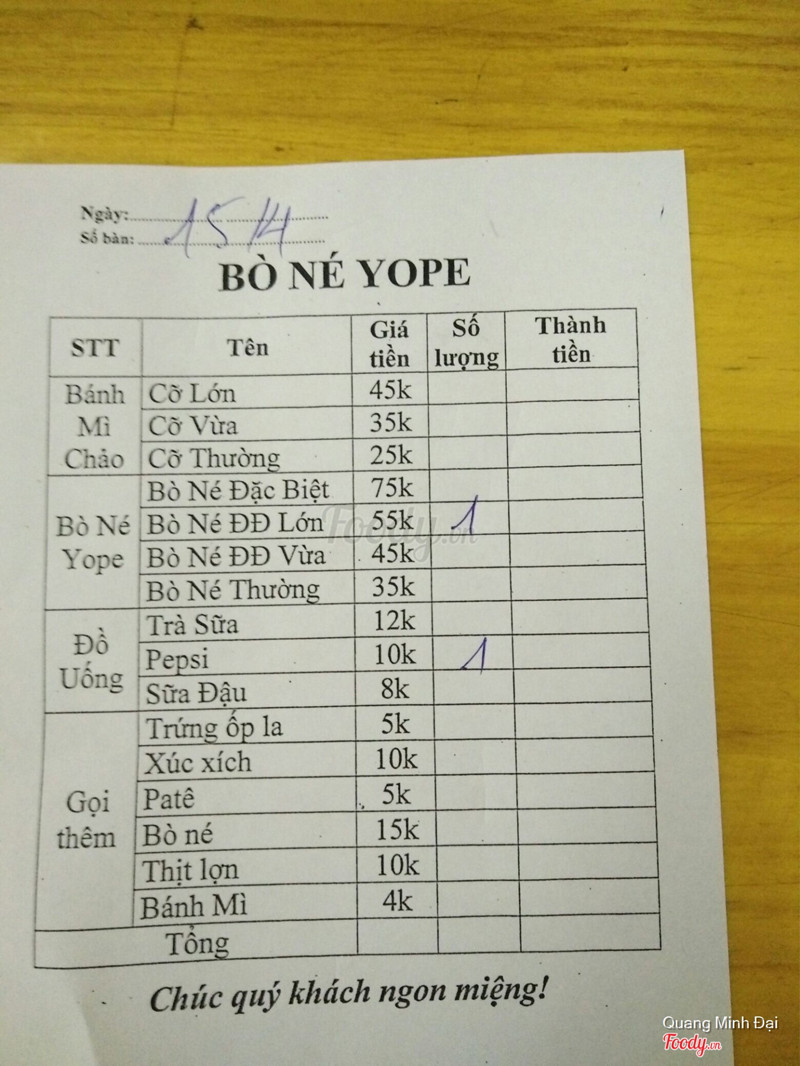 Ngày: 15/4
Số bàn:
BÒ NÉ YOPE
STT Tên Giá tiền Số lượng Thành tiền
Bánh Mì Chảo
Cỡ Lớn 45k
Cỡ Vừa 35k
Cỡ Thường 25k
Bò Né Yope
Bò Né Đặc Biệt 75k
Bò Né ĐĐ Lớn 55k 1
Bò Né ĐĐ Vừa 45k
Bò Né Thường 35k
Đồ Uống
Trà Sữa 12k
Pepsi 10k 1
Sữa Đậu 8k
Gọi thêm
Trứng ốp la 5k
Xúc xích 10k
Patê 5k
Bò né 15k
Thịt lợn 10k
Bánh Mì 4k
Tổng
Chúc quý khách ngon miệng!
Foody.vn
Quang Minh Đại
Foody.vn